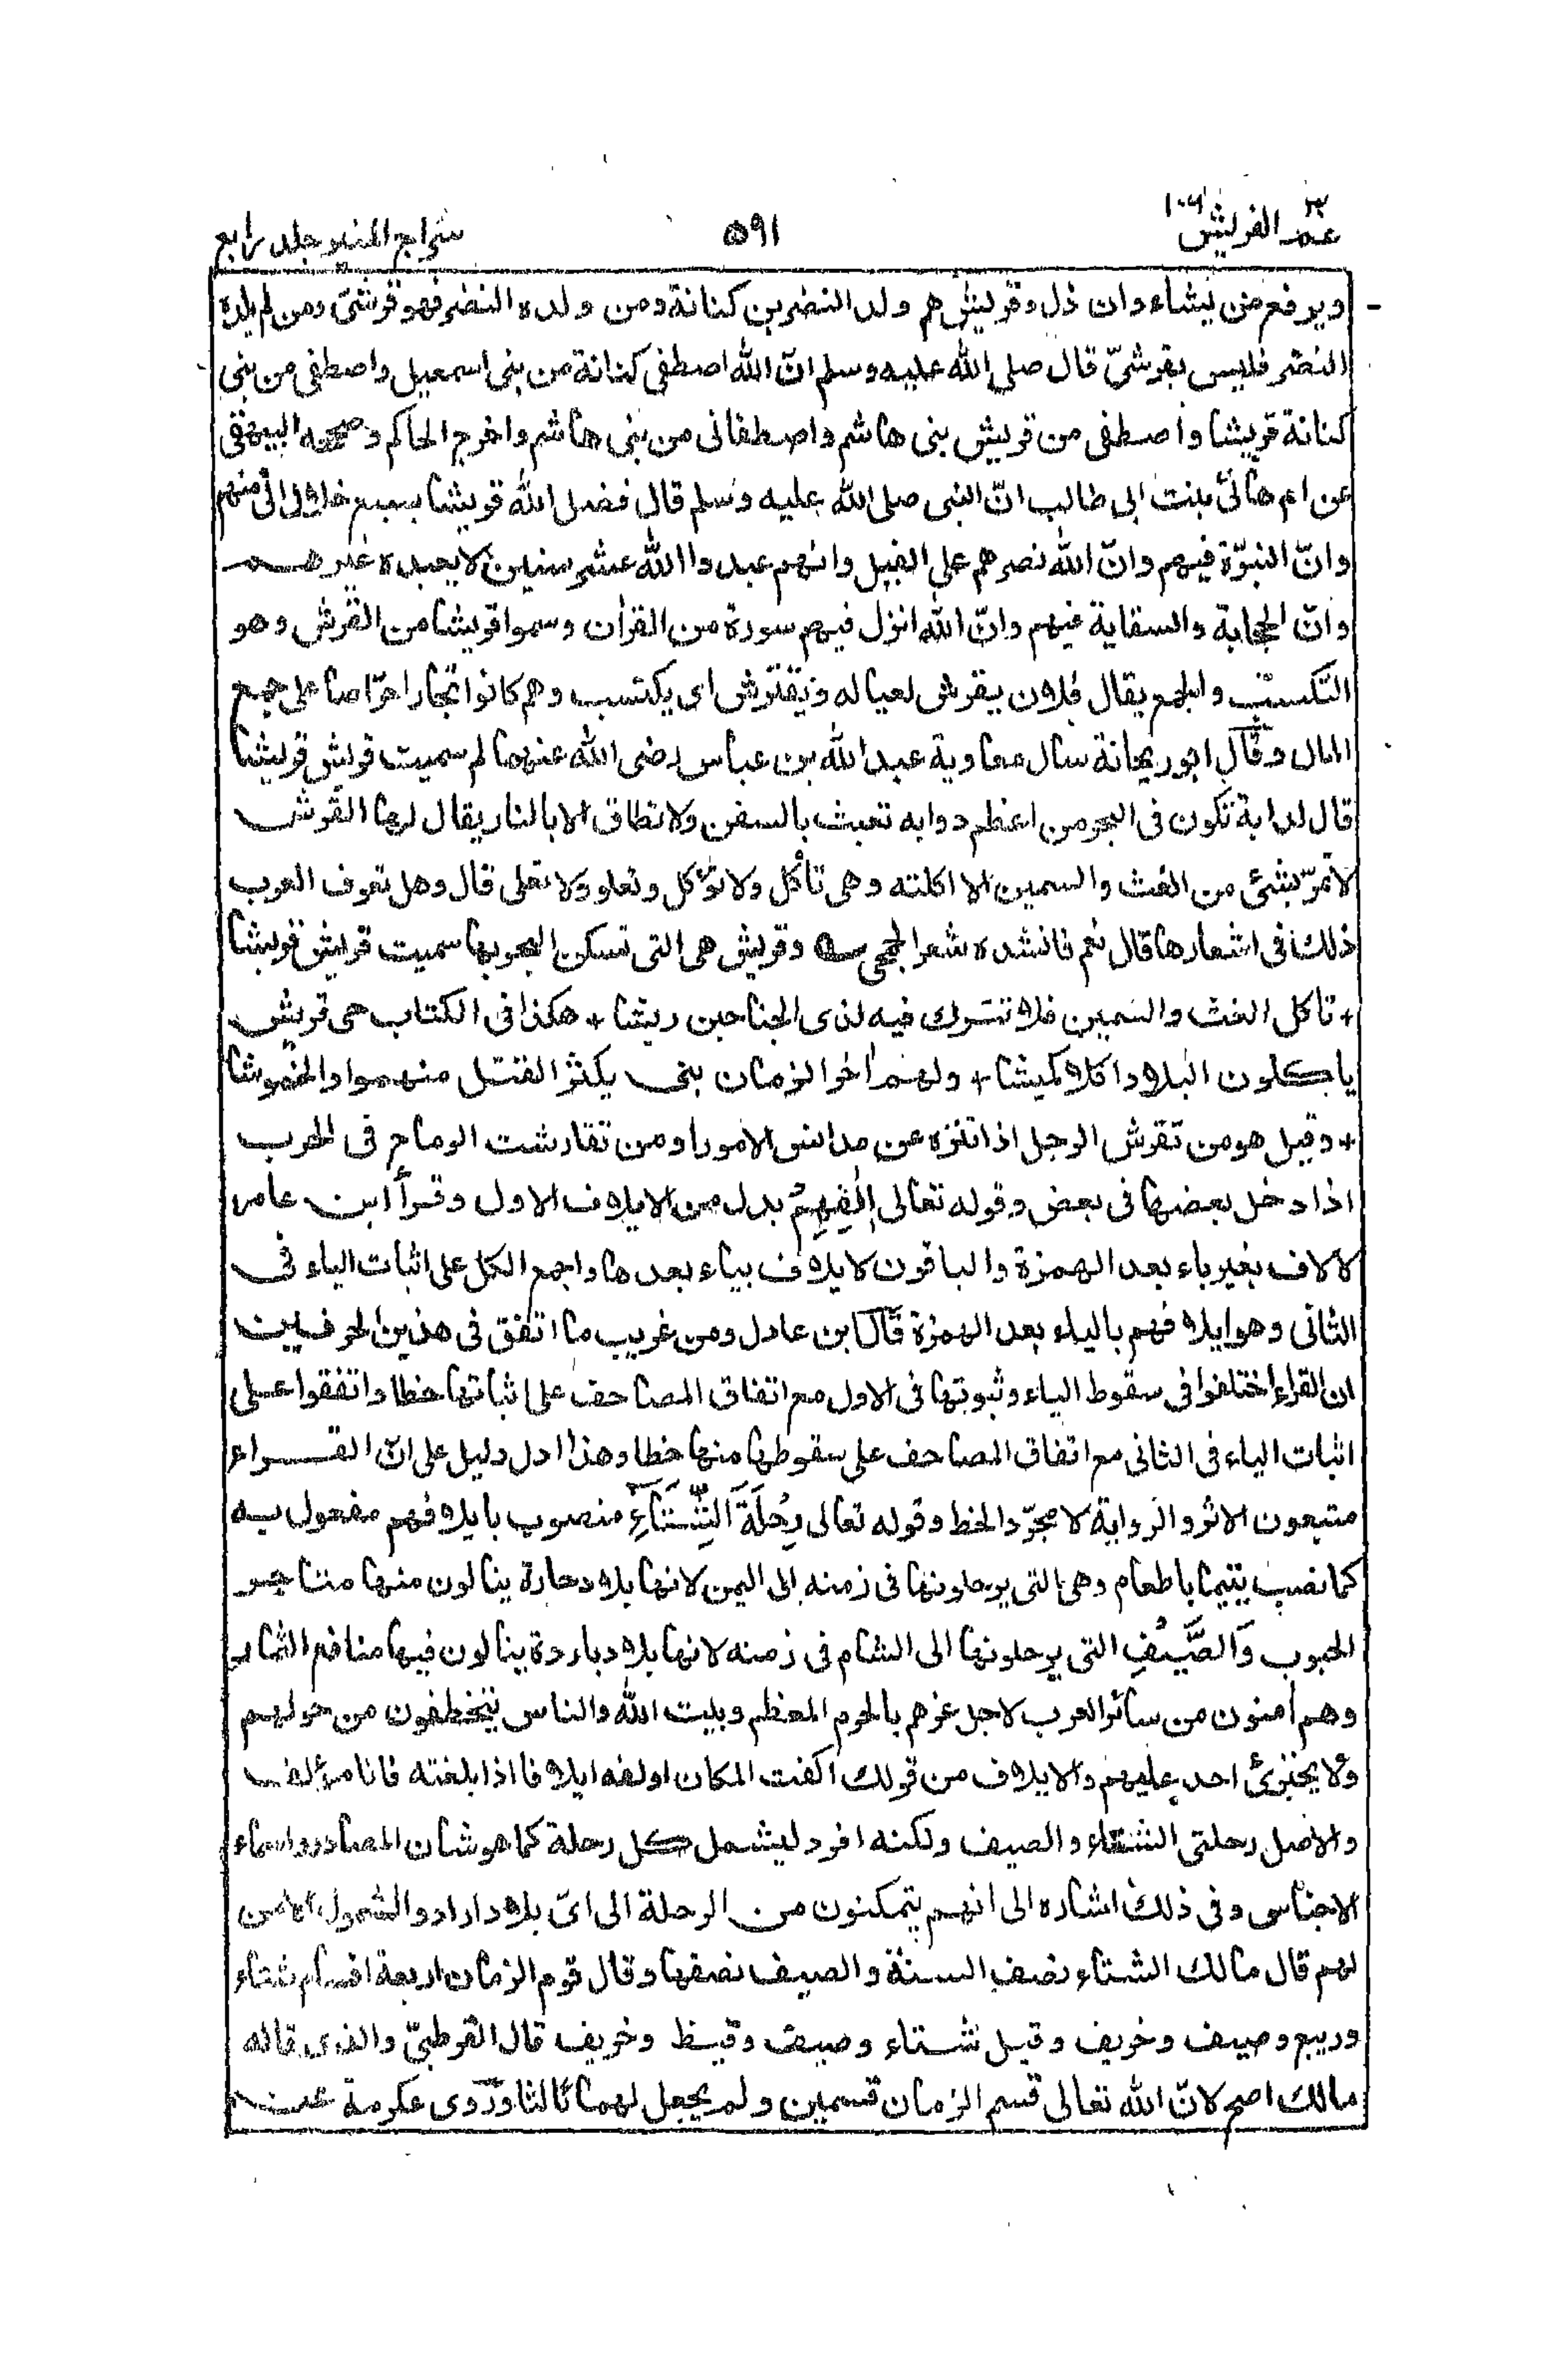 عمّ القريش ١٠٦
٥٩١
سراج المنير جلد رابع
ويرفع من يشاء وان ذل وقريش هم ولد النضر بن كنانة ومن ولده النضر فهو قرشىّ ومن لم يلده
النضر فليس بقرشىّ قال صلى الله عليه وسلم انّ الله اصطفى كنانة من بنى اسمعيل واصطفى من بنى
كنانة قريشا واصطفى من قريش بنى هاشم واصطفانى من بنى هاشم واخرج الحاكم وصححه البيهقى
عن ام هانئ بنت ابى طالب انّ النبى صلى الله عليه وسلم قال فضل الله قريشا بسبع خلال انى منهم
وانّ النبوّة فيهم وانّ الله نصرهم على الفيل وانهم عبدوا الله عشر سنين لا يعبده غيرهم
وانّ الحجابة والسقاية فيهم وانّ الله انزل فيهم سورة من القرأن وسموا قريشا من القرش وهو
التكسب والجمع يقال فلان يقرش لعياله ويقترش اى يكتسب وهم كانوا تجارا حرّاصا على جمع
المال وقال ابو ريحانة سال معاوية عبد الله بن عباس رضى الله عنهما لم سميت قريش قريشا
قال لدابة تكون فى البحر من اعظم دوابه تعبث بالسفن ولا تطاق الا بالنار يقال لها القرش
لا تمرّ بشئ من الغث والسمين الا اكلته وهى تأكل ولا تؤكل وتعلو ولا تعلى قال وهل تعرف العرب
ذلك فى اشعارها قال نعم فانشده شعر الجمحى ؎ وقريش هى التى تسكن البحر بها سميت قريش قريشا
+ تاكل الغث والسمين فلا تترك فيه لذى الجناحين ريشا + هكذا فى الكتاب حى قريش
ياكلون البلاد اكلا كميشا + ولهم أخر الزمان نبى يكثر القتل منهموا والخموشا
+ وقيل هو من تقرش الرجل اذا تنزه عن مدانس الامور او من تقارشت الرماح فى الحرب
اذا دخل بعضها فى بعض وقوله تعالى اٖلٰفِهِمْ بدل من الايلاف الاول وقرأ ابن عامر
لالاف بغير ياء بعد الهمزة والباقون لايلاف بياء بعدها واجمع الكل على اثبات الياء فى
الثانى وهو ايلافهم بالياء بعد الهمزة قال ابن عادل ومن غريب ما اتفق فى هذين الحرفين
ان القراء اختلفوا فى سقوط الياء وثبوتها فى الاول مع اتفاق المصاحف على اثباتها خطا واتفقوا على
اثبات الياء فى الثانى مع اتفاق المصاحف على سقوطها منها خطا وهذا ادل دليل على انّ القراء
متبعون الاثر والرواية لا مجرّد الخط وقوله تعالى رِحْلَةَ الشِّتَآءِ منصوب بايلافهم مفعول به
كما نصب يتيما باطعام وهى التى يرحلونها فى زمنه الى اليمن لانها بلاد حارة ينالون منها متاجر
الحبوب وَالصَّيْفِ التى يرحلونها الى الشام فى زمنه لانها بلاد باردة ينالون فيها منافع الثمار
وهم أمنون من سائر العرب لاجل عزهم بالحرم المعظم وبيت الله والناس يتخطفون من حولهم
ولا يجترئ احد عليهم والايلاف من قولك أكفت المكان اولفه ايلافا اذا بلغته فانا مؤلف
والاصل رحلتى الشتاء والصيف ولكنه افرد ليشمل كل رحلة كما هو شان المصادر واسماء
الاجناس وفى ذلك اشاره الى انهم يتمكنون من الرحلة الى اىّ بلاد ارادوا لشمول الامن
لهم قال مالك الشتاء نصف السنة والصيف نصفها وقال قوم الزمان اربعة اقسام شتاء
وربيع وصيف وخريف وقيل شتاء وصيف وقيظ وخريف قال القرطبىّ والذى قاله
مالك اصح لانّ الله تعالى قسم الزمان قسمين ولم يجعل لهما ثالثا وروى عكرمة عن